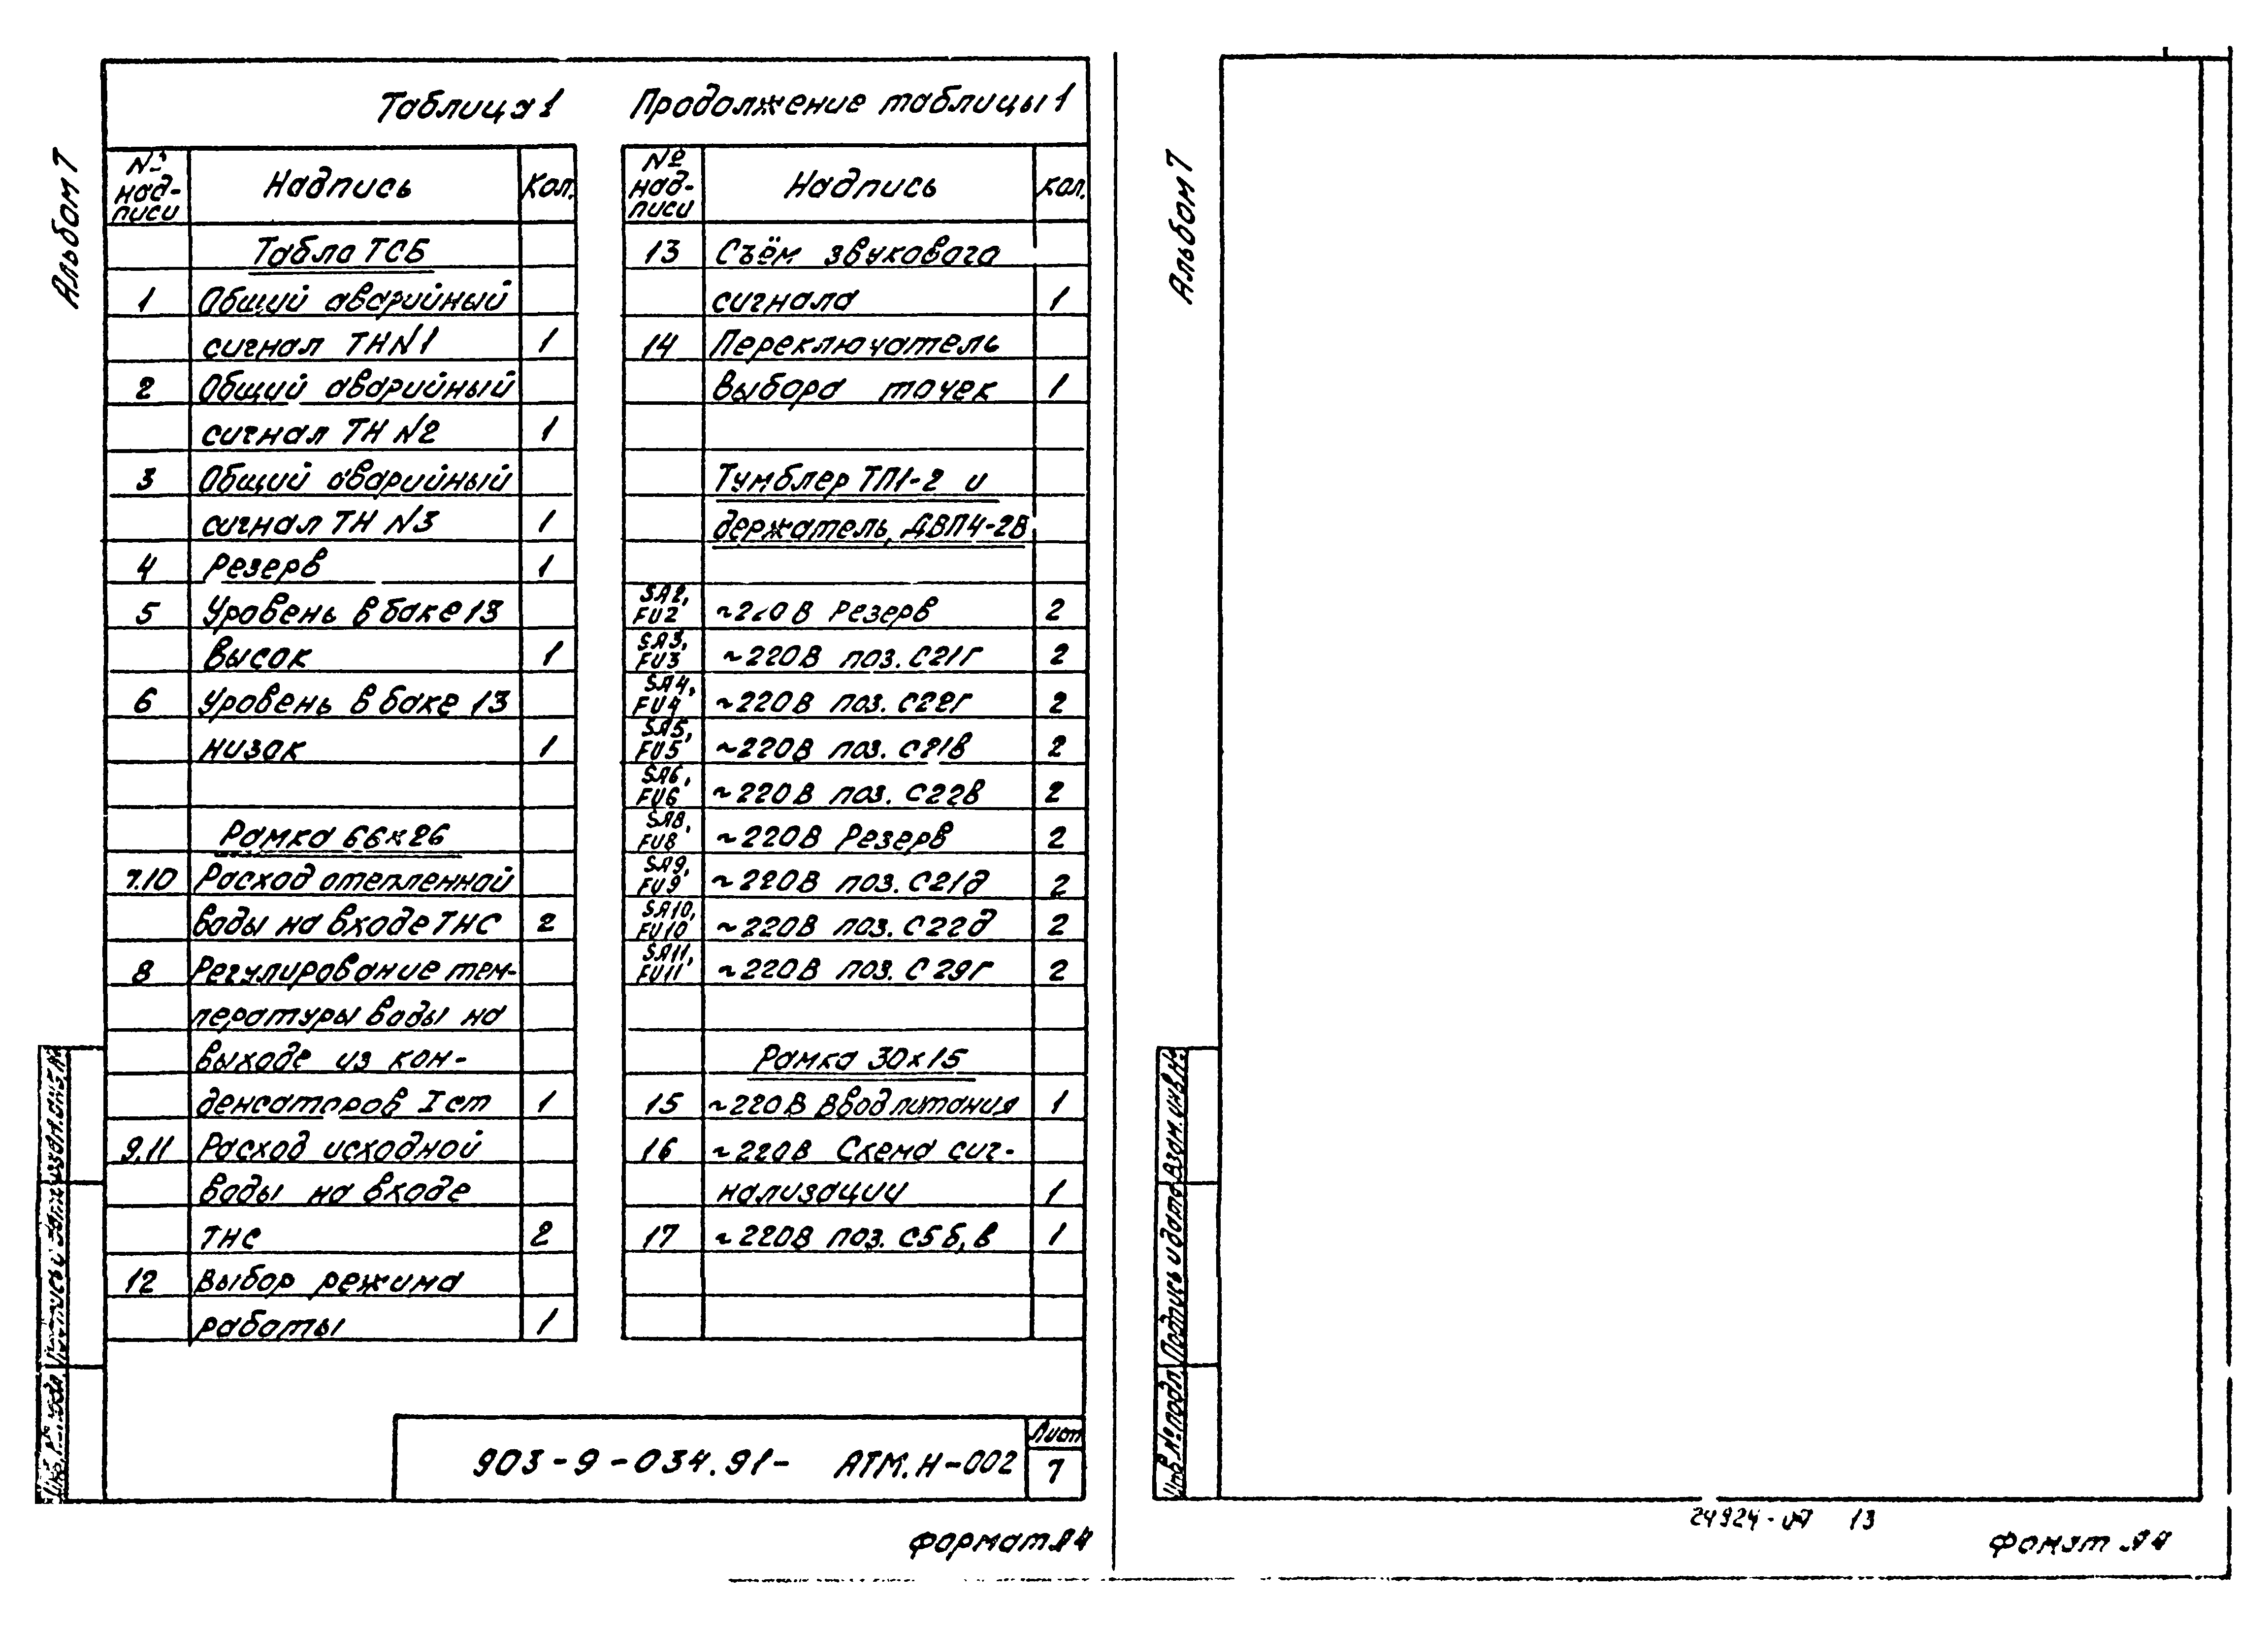 Альбом 7
Таблица 1
№ над-писи Надпись Кол.
Табло ТСБ
1 Общий аварийный
сигнал ТН N1 1
2 Общий аварийный
сигнал ТН N2 1
3 Общий аварийный
сигнал ТН N3 1
4 Резерв 1
5 Уровень в баке 13
высок 1
6 Уровень в баке 13
низок 1
Рамка 66×26
7.10 Расход отепленной
воды на входе ТНС 2
8 Регулирование тем-
пературы воды на
выходе из кон-
денсаторов I ст 1
9.11 Расход исходной
воды на входе
ТНС 2
12 Выбор режима
работы 1
Продолжение таблицы 1
№ над-писи Надпись Кол.
13 Съём звукового
сигнала 1
14 Переключатель
выбора точек 1
Тумблер ТП1-2 и
держатель ДВП4-2В
SA2, FU2 ~220В Резерв 2
SA3, FU3 ~220В поз. С21г 2
SA4, FU4 ~220В поз. С22г 2
SA5, FU5 ~220В поз. С21в 2
SA6, FU6 ~220В поз. С22в 2
SA8, FU8 ~220В Резерв 2
SA9, FU9 ~220В поз. С21д 2
SA10, FU10 ~220В поз. С22д 2
SA11, FU11 ~220В поз. С29г 2
Рамка 30×15
15 ~220В Ввод питания 1
16 ~220В Схема сиг-
нализации 1
17 ~220В поз. С5б, в 1
903-9-034.91- АТМ.Н-002
Лист
7
Формат А4
Альбом 7
Инв.№подл. Подпись и дата Взам.инв.№
24924-07 13
Фомат А4